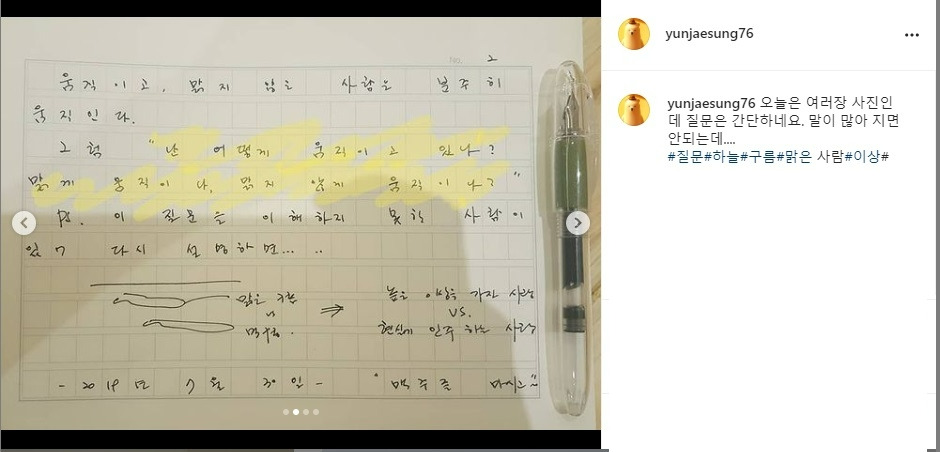 No. 2
움직이고, 맑지 않은 사람은 분주히
움직인다.
그럼 "난 어떻게 움직이고 있나?
맑게 움직이나, 맑지 않게 움직이나?"
ps. 이 질문을 이해하지 못한 사람이
있어 다시 설명하면... ..
맑은 구름 높은 이상을 가진 사람
vs ⇒ vs.
먹구름. 현실에 안주 하는 사람
- 2019년 7월 30일 - 맥주를 마시고~
yunjaesung76
yunjaesung76 오늘은 여러장 사진인
데 질문은 간단하네요. 말이 많아 지면
안되는데....
#질문#하늘#구름#맑은 사람#이상#